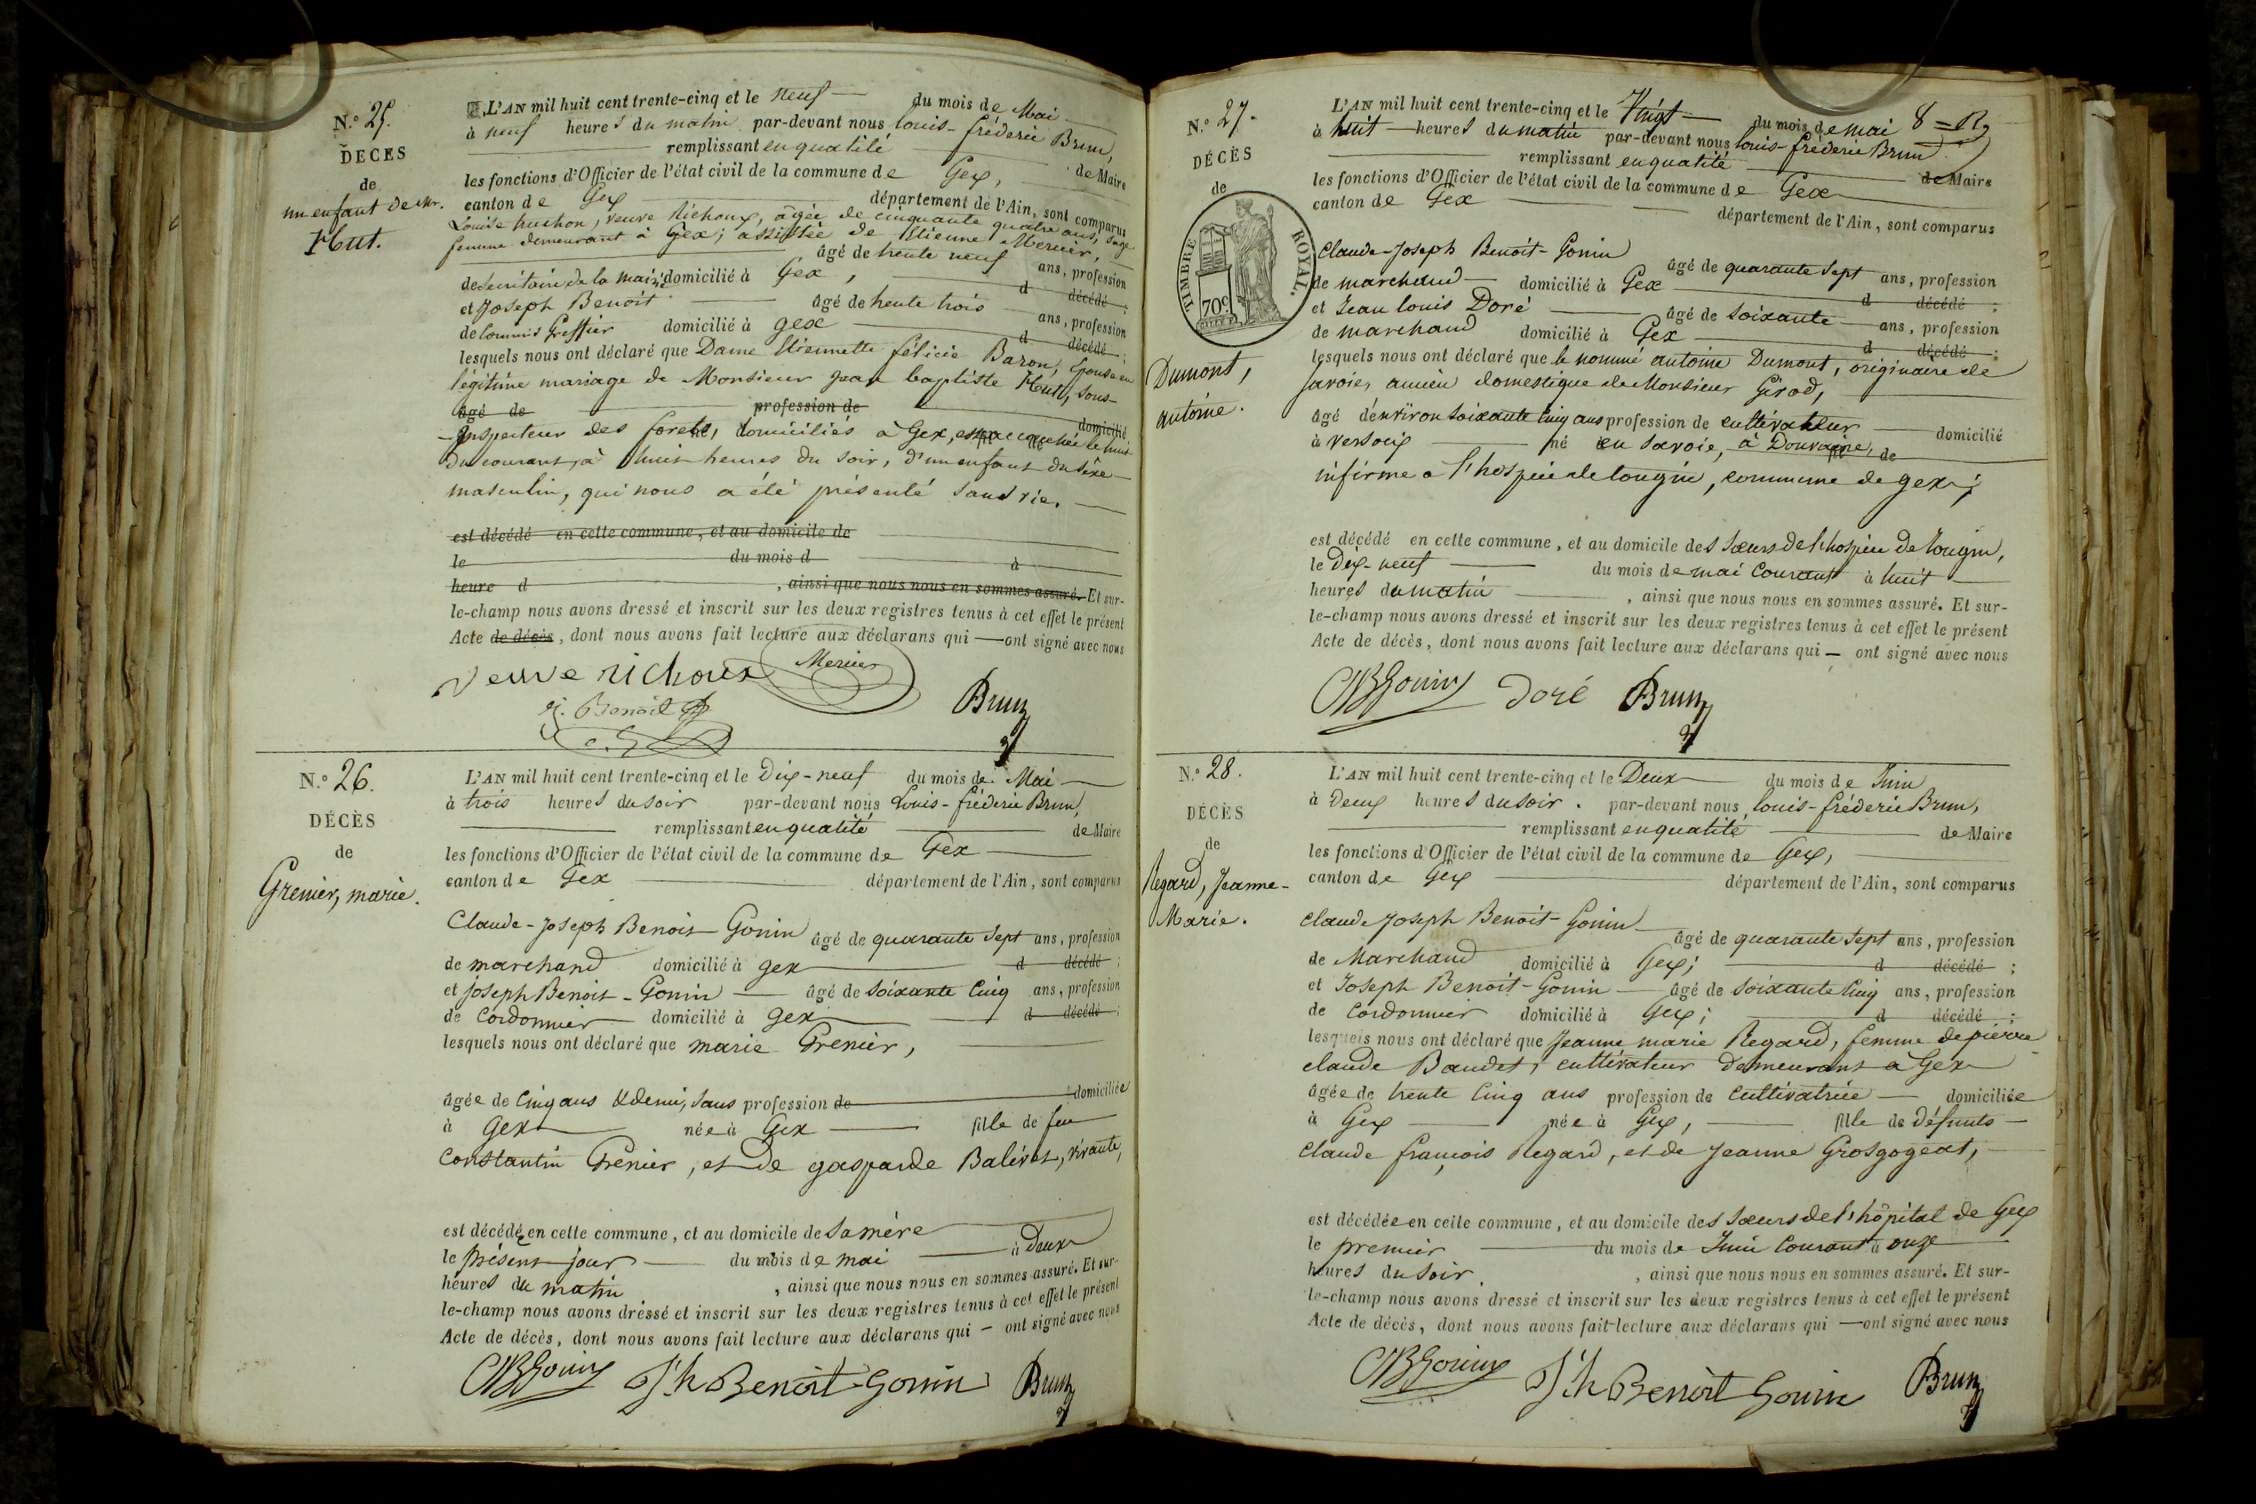 N.º 25.
DÉCES
de
un enfant de Mr.
Hut.
L'AN mil huit cent trente-cinq et le neuf du mois de Mai
à neuf heures du matin par-devant nous Louis-fréderic Brun,
remplissant en qualité de Maire
les fonctions d'Officier de l'état civil de la commune de Gex,
canton de Gex département de l'Ain, sont comparus
Louise huchon, veuve Richoux, âgée de cinquante quatre ans, sage
femme demeurant à Gex; assistée de Etienne Mercier,
âgé de trente neuf ans, profession
de secrétaire de la mairie domicilié à Gex, d décédé ;
et Joseph Benoit âgé de trente trois ans, profession
de Commis Greffier domicilié à gex d décédé ;
lesquels nous ont déclaré que Dame Etiennette félicie Baron, épouse en
légitime mariage de Monsieur jean baptiste Hutt, sous-
âgé de profession de domicilié
Inspecteur des forets, domiciliés à Gex, est accouchée le huit
du courant, à huit heures du soir, d'un enfant du sexe
masculin, qui nous a été présenté sans vie.
est décédé en cette commune, et au domicile de
le du mois d à
heure d , ainsi que nous nous en sommes assuré. Et sur-
le-champ nous avons dressé et inscrit sur les deux registres tenus à cet effet le présent
Acte de décès, dont nous avons fait lecture aux déclarans qui ont signé avec nous
veuve richoux Mercier
j. Benoit Brun
N.º 26.
DÉCÈS
de
Grenier, marie.
L'AN mil huit cent trente-cinq et le Dix-neuf du mois de Mai
à trois heures du soir par-devant nous Louis-fréderic Brun,
remplissant en qualité de Maire
les fonctions d'Officier de l'état civil de la commune de Gex
canton de Gex département de l'Ain, sont comparus
Claude-joseph Benoit Gonin âgé de quarante sept ans, profession
de marchand domicilié à gex d décédé ;
et joseph Benoit-Gonin âgé de soixante cinq ans, profession
de Cordonnier domicilié à gex d décédé ;
lesquels nous ont déclaré que marie Grenier,
âgée de cinq ans & demi, sans profession de domiciliée
à gex née à Gex fille de feu
Constantin Grenier, et de gasparde Balivat, vivante,
est décédée en cette commune, et au domicile de sa mère
le présent jour du mois de mai à Deux
heures du matin , ainsi que nous nous en sommes assuré. Et sur-
le-champ nous avons dressé et inscrit sur les deux registres tenus à cet effet le présent
Acte de décès, dont nous avons fait lecture aux déclarans qui ont signé avec nous
CJBGonin Jh Benoit Gonin Brun
N.º 27.
DÉCÈS
de
TIMBRE ROYAL.
70c.
Dumont,
antoine.
L'AN mil huit cent trente-cinq et le Vingt du mois de mai
à huit heures du matin par-devant nous louis-fréderic Brun
remplissant en qualité de Maire
les fonctions d'Officier de l'état civil de la commune de Gex
canton de Gex département de l'Ain, sont comparus
Claude-Joseph Benoit-Gonin âgé de quarante sept ans, profession
de marchand domicilié à Gex d décédé ;
et Jean louis Doré âgé de soixante ans, profession
de marchand domicilié à Gex d décédé ;
lesquels nous ont déclaré que le nommé antoine Dumont, originaire de
savoie, ancien domestique de Monsieur Girod,
âgé d'environ soixante cinq ans profession de cultivateur domicilié
à versoix né en savoie, à Douvaine, de
infirme à l'hospice de tougin, commune de gex;
est décédé en cette commune, et au domicile des sœurs de l'hospice de tougin,
le Dix-neuf du mois de mai courant à huit
heures du matin , ainsi que nous nous en sommes assuré. Et sur-
le-champ nous avons dressé et inscrit sur les deux registres tenus à cet effet le présent
Acte de décès, dont nous avons fait lecture aux déclarans qui ont signé avec nous
CJBGonin Doré Brun
N.º 28.
DÉCÈS
de
Regard, Jeanne-
Marie.
L'AN mil huit cent trente-cinq et le Deux du mois de Juin
à Deux heures du soir. par-devant nous louis-fréderic Brun,
remplissant en qualité de Maire
les fonctions d'Officier de l'état civil de la commune de Gex,
canton de Gex département de l'Ain, sont comparus
claude Joseph Benoit-Gonin âgé de quarante sept ans, profession
de Marchand domicilié à Gex; d décédé ;
et Joseph Benoit-Gonin âgé de soixante cinq ans, profession
de Cordonnier domicilié à Gex; d décédé ;
lesquels nous ont déclaré que Jeanne marie Regard, femme de pierre
claude Baudet, cultivateur demeurant à Gex
âgée de trente cinq ans profession de cultivatrice domiciliée
à Gex née à Gex, fille de défunts
claude françois Regard, et de Jeanne Grosgogeat,
est décédée en cette commune, et au domicile des sœurs de l'hôpital de Gex
le premier du mois de Juin courant à onze
heures du soir. , ainsi que nous nous en sommes assuré. Et sur-
le-champ nous avons dressé et inscrit sur les deux registres tenus à cet effet le présent
Acte de décès, dont nous avons fait lecture aux déclarans qui ont signé avec nous
CJBGonin Jh Benoit Gonin Brun